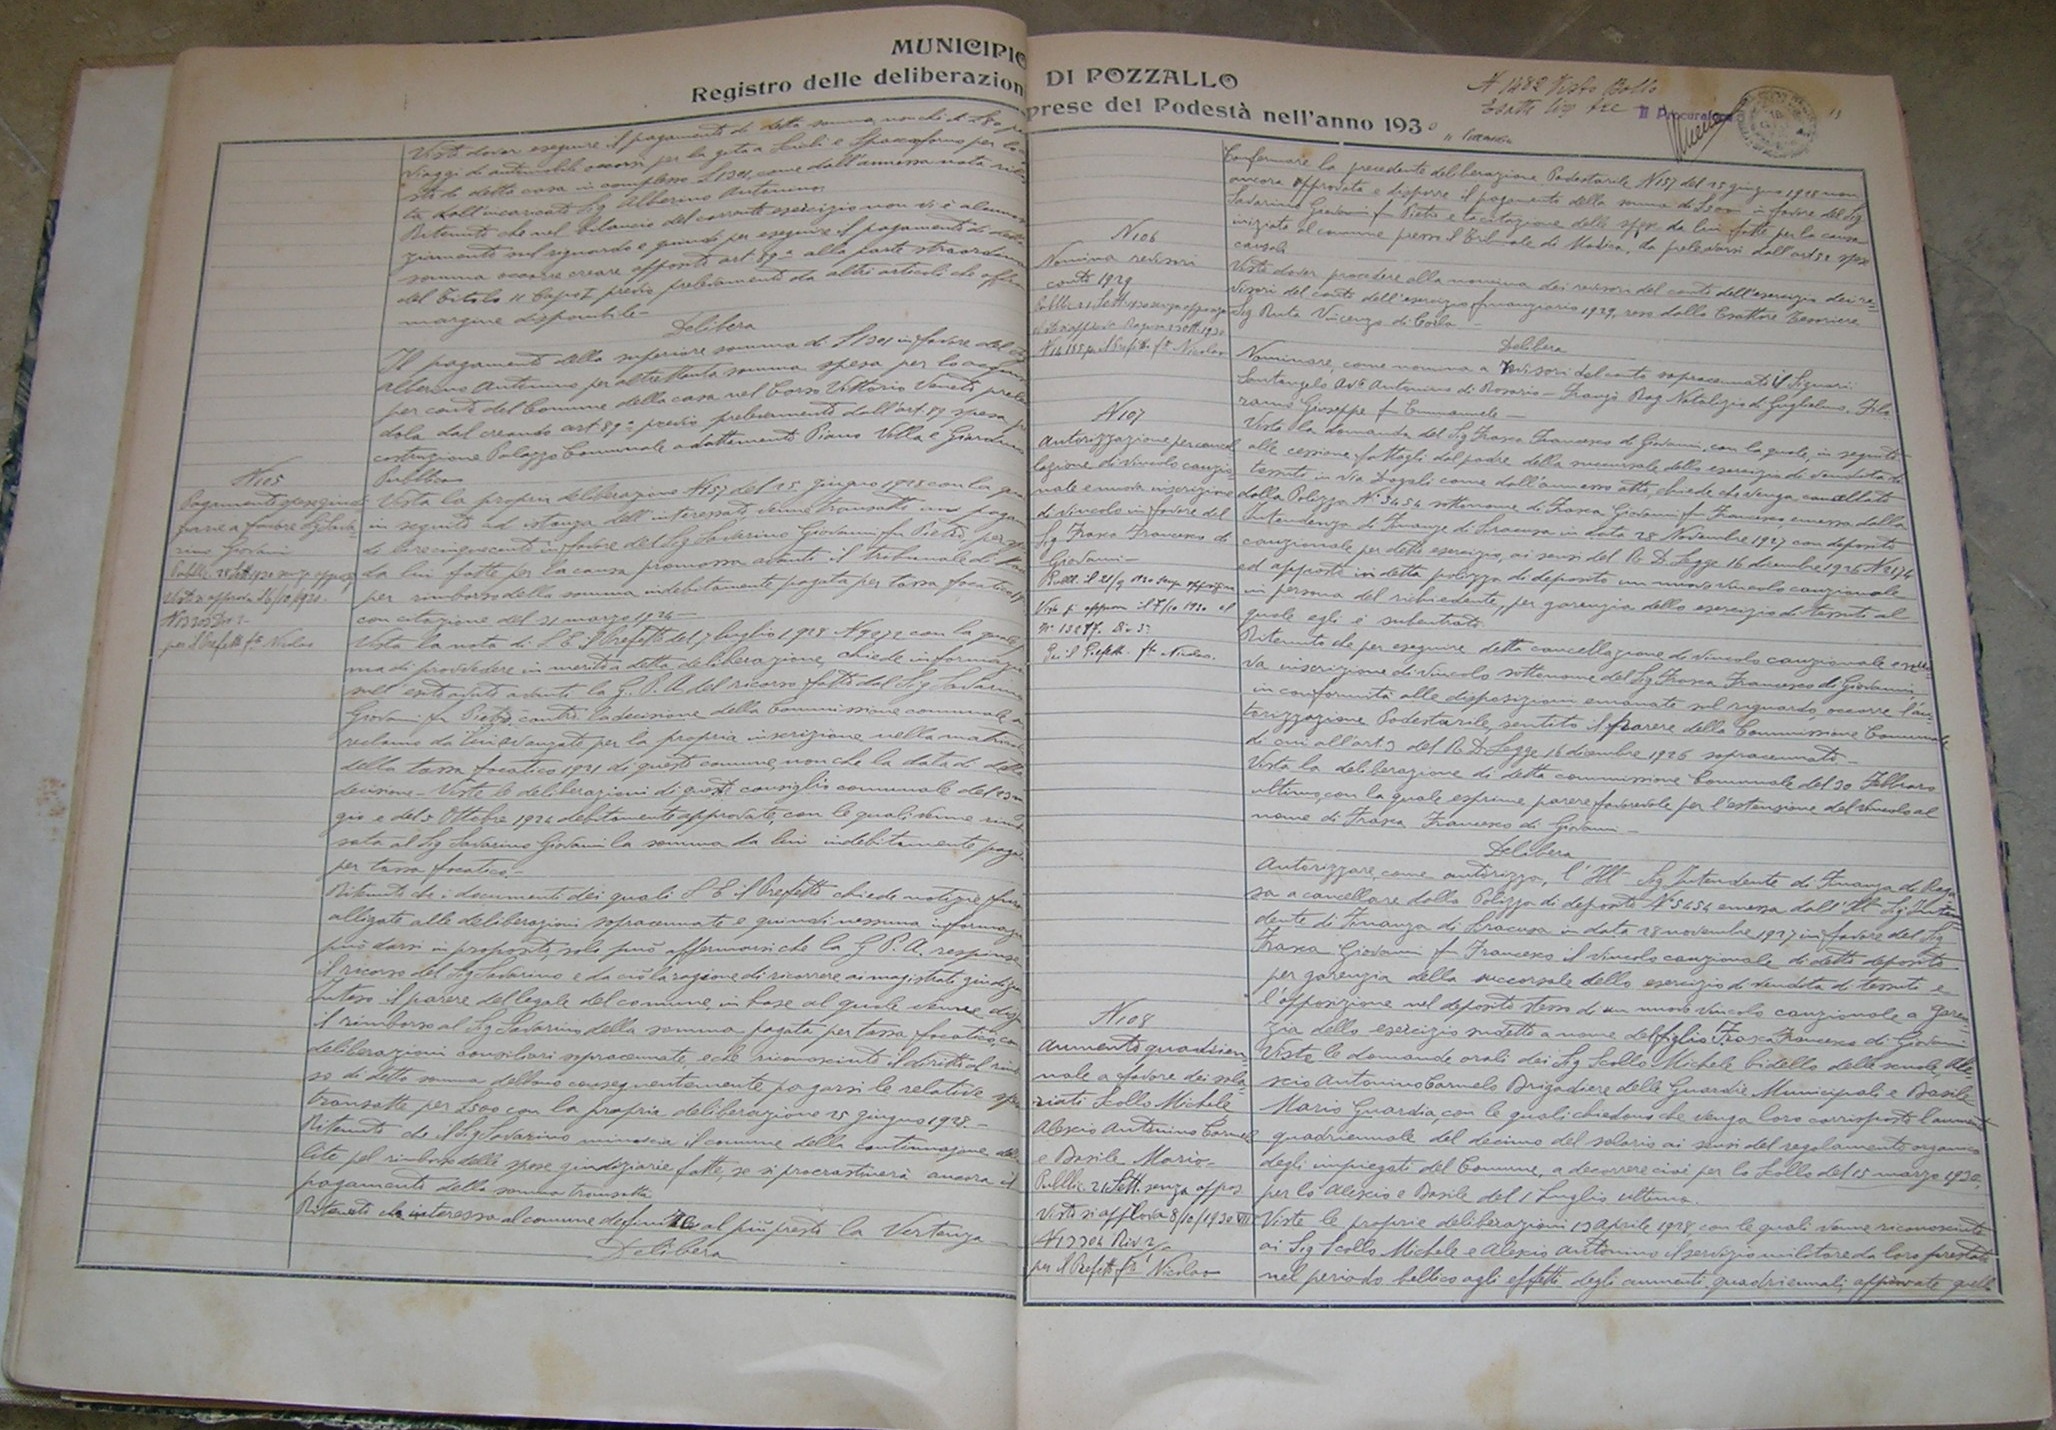 MUNICIPIO DI POZZALLO
Registro delle deliberazioni prese del Podestà nell'anno 1930
N 1482 Visto Bollo
Il Procuratore
Visto dover eseguire il pagamento di detta somma nonchè di
viaggi di automobile occorsi per la gita a Scicli e Spaccaforno per lo
sto di detta casa in complesso £ 1301, come dall'annessa nota
ta dall'incaricato Sig. Alberino Antonino;
Ritenuto che nel bilancio del corrente esercizio non vi è alcuno
ziamento nel riguardo e quindi per eseguire il pagamento di detta
somma occorre creare apposito art 89 alla parte straordina
del Titolo II Capo I previo prelevamento da altri articoli che offrono
margine disponibile -
Delibera
Il pagamento della superiore somma di £ 1301 in favore del Sig
Alberino Antonino per altrettanta somma spesa per lo acquisto
per conto del Comune della casa nel Corso Vittorio Veneto preleva
dola dal creando art 89 previo prelevamento dall'art. 87 spesa
costruzione Palazzo Comunale adattamento Piano Villa e Giardino
Pubblico
N 105
Pagamento spese giudi
ziarie a favore Sig Sava
rino Giovanni
Pubbl. 28 Sett 1930 senza oppos
Visto si approva 16/10/1930
per il Prefetto fto Nicolao
Vista la propria deliberazione N 157 del 25 giugno 1928 con la quale
in seguito ad istanza dell'interessato, venne transatto un pagamen
to lire cinquecento in favore del Sig Savarino Giovanni fu Pietro per spese
da lui fatte per la causa promossa avanti il tribunale di
per rimborso della somma indebitamente pagata per tassa focatico
con citazione del 31 marzo 1926 -
Vista la nota di S. E. il Prefetto del 7 luglio 1928 N 9272 con la quale
ma di provvedere in merito a detta deliberazione, chiede informazioni
sull'esito avuto avanti la G. P. A. del ricorso fatto dal Sig Savarino
Giovanni fu Pietro, contro la decisione della Commissione comunale
reclamo da lui avanzato per la propria inscrizione nella matricola
della tassa focatico 1921 di questo comune, nonchè la data di detta
decisione - Viste le deliberazioni di questo consiglio comunale del
gio e del 5 Ottobre 1924 debitamente approvate, con le quali venne rimbor
sata al Sig Savarino Giovanni la somma da lui indebitamente pagata
per tassa focatico -
Ritenuto che i documenti dei quali S. E. il Prefetto chiede notizie furono
allegate alle deliberazioni sopracennate e quindi nessuna informazione
può darsi in proposito, solo può affermarsi che la G. P. A. respinse
il ricorso del Sig Savarino e da ciò la ragione di ricorrere ai magistrati giudizia
Inteso il parere del legale del comune, in base al quale venne disposto
il rimborso al Sig Savarino della somma pagata per tassa focatico, con
deliberazioni consiliari sopracennate, e che riconosciuto il diritto al rimbor
so di detta somma debbono conseguentemente pagarsi le relative spese
transatte per £ 500 con la propria deliberazione 25 giugno 1928 -
Ritenuto che il Sig Savarino minaccia il comune della continuazione della
lite pel rimborso delle spese giudiziarie fatte, se si procrastinerà ancora il
pagamento della somma transatta
Ritenuto che interessa al comune definire al più presto la vertenza
Delibera
Confermare la precedente deliberazione Podestarile N 157 del 25 giugno 1928 non
ancora approvata e disporre il pagamento della somma di £ 500 in favore del Sig
Savarino Giovanni fu Pietro e tacitazione delle spese da lui fatte per la causa
iniziata al comune presso il Tribunale di Modica, da prelevarsi dall'art 32 spese
causali
N 106
Nomina revisori
conto 1929
Pubbl. 21 Sett. 1930 senza opposiz
N 14155 p. il Prefetto fto Nicolao
Visto dover procedere alla nomina dei revisori del conto dell'esercizio dei re-
visori del conto dell'esercizio finanziario 1929, reso dallo Esattore Tesoriere
Sig Ruta Vincenzo di Carlo -
Delibera
Nominare, come nomina a revisori del conto sopracennato i Signori
Santangelo Avv Antonino di Rosario - Franzò Rag Natalizio di Guglielmo, Filo
ramo Giuseppe fu Emmanuele -
N 107
Autorizzazione per cancel
lazione di vincolo cauzio
nale e nuova inscrizione
di vincolo in favore del
Sig Frasca Francesco di
Giovanni -
Pubbl. il 21/9 1930 senza opposizione
Visto si approva il 7/10 1930
per il Prefetto fto Nicolao
Vista la domanda del Sig Frasca Francesco di Giovanni, con la quale, in seguito
alle cessione fattagli dal padre della succursale dello esercizio di vendita di
tessuti in via Dogali come dall'annesso atto, chiede che venga cancellato
dalla Polizza N° 5454 sottonome di Frasca Giovanni fu Francesco emessa dalla
Intendenza di Finanza di Siracusa in data 28 Novembre 1927 con deposito
cauzionale per detto esercizio, ai sensi del R. D. Legge 16 dicembre 1926 N 2174
ed apposto in detta polizza di deposito un nuovo vincolo cauzionale
in persona del richiedente, per garenzia dello esercizio di tessuti al
quale egli è subentrato.
Ritenuto che per eseguire detta cancellazione di vincolo cauzionale e nuo
va inscrizione di vincolo sottonome del Sig Frasca Francesco di Giovanni
in conformità alle disposizioni emanate nel riguardo, occorre l'au
torizzazione Podestarile, sentito il parere della Commissione Comunale
di cui all'art. 3 del R. D. Legge 16 dicembre 1926 sopracennato -
Vista la deliberazione di detta commissione Comunale del 20 Febbraro
ultimo, con la quale esprime parere favorevole per l'estenzione del vincolo al
nome di Frasca Francesco di Giovanni -
Delibera
Autorizzare, come autorizza, l'Ill. Sig Intendente di Finanza di Ragu
sa a cancellare dalla Polizza di deposito N° 5454 emessa dall'Ill. Sig. Inten
dente di Finanza di Siracusa in data 28 novembre 1927 in favore del Sig
Frasca Giovanni fu Francesco il vincolo cauzionale di detto deposito
per garenzia della succursale dello esercizio di vendita di tessuti e
l'apposizione nel deposito stesso di un nuovo vincolo cauzionale a garen
zia dello esercizio suddetto a nome del figlio Frasca Francesco di Giovanni
N 108
Aumento quadrien
nale a favore dei sala
riati Scollo Michele
Alescio Antonino Carmelo
e Basile Mario -
Pubbl. 21 Sett. senza oppos
Visto si approva 8/10/1930 VIII
N 13304 Div 2/a
per il Prefetto fto Nicolao
Viste le domande orali dei Sig Scollo Michele bidello delle scuole, Ale-
scio Antonino Carmelo Brigadiere delle Guardie Municipali e Basile
Mario Guardia, con le quali chiedono che venga loro corrisposto l'aumento
quadriennale del decimo del salario ai sensi del regolamento organico
degli impiegati del Comune, a decorrere cioè per lo Scollo del 15 marzo 1930,
per lo Alescio e Basile del 1 Luglio ultimo.
Viste le proprie deliberazioni 13 Aprile 1928, con le quali venne riconosciuto
ai Sig Scollo Michele e Alescio Antonino il servizio militare da loro prestato
nel periodo bellico agli effetti degli aumenti quadriennali, approvate quelle